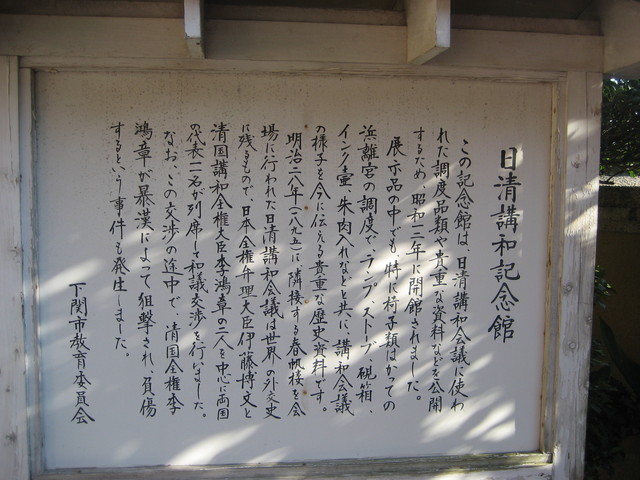 日清講和記念館
この記念館は、日清講和会議に使わ
れた調度品類や貴重な資料などを公開
するため、昭和一二年に開館されました。
展示品の中でも特に椅子類はかつての
浜離宮の調度で、ランプ、ストーブ、硯箱、
インク壷、朱肉入れなどと共に、講和会議
の様子を今に伝える貴重な歴史資料です。
明治二八年(一八九五)に隣接する春帆楼を会
場に行われた日清講和会議は世界の外交史
に残るもので、日本全権弁理大臣伊藤博文と
清国講和全権大臣李鴻章の二人を中心に両国
の代表一一名が列席して和議交渉を行いました。
なお、この交渉の途中で、清国全権李
鴻章が暴漢によって狙撃され、負傷
するという事件も発生しました。
下関市教育委員会